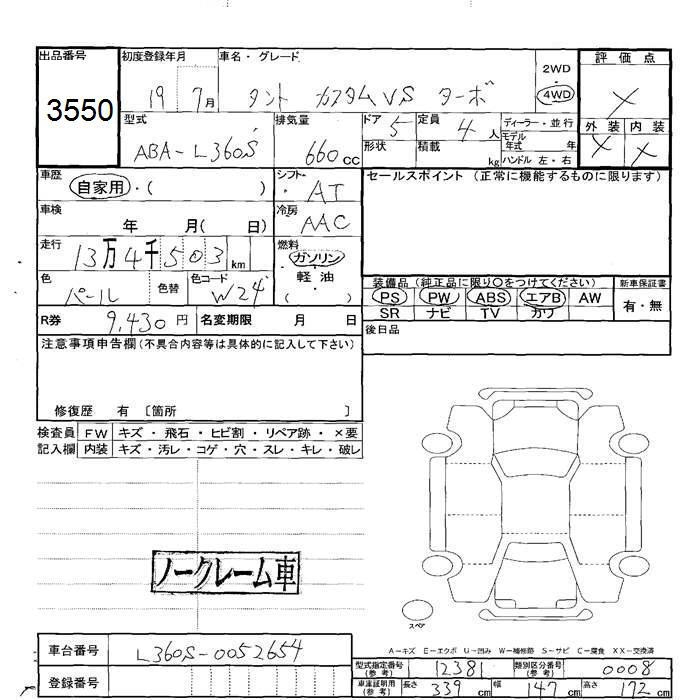 出品番号 初度登録年月 車名・グレード 評価点
3550 19 7月 タント カスタムVS ターボ 2WD 4WD X
型式 排気量 ドア 5 定員 4人 ディーラー・並行 外装 内装
ABA-L360S 660cc 形状 積載 kg モデル年式 年 X X
ハンドル 左・右
車歴 自家用・( ) シフト AT セールスポイント (正常に機能するものに限ります)
車検 年 月( 日) 冷房 AAC
走行 13万4千503km 燃料 ガソリン・軽油・( )
色 パール 色替 色コード W24 装備品 (純正品に限り〇をつけてください) 新車保証書
PS PW ABS エアB AW 有・無
R券 9,430円 名変期限 月 日 SR ナビ TV カワ
注意事項申告欄(不具合内容等は具体的に記入して下さい) 後日品
修復歴 有 [箇所 ]
検査員 FW キズ・飛石・ヒビ割・リペア跡・×要
記入欄 内装 キズ・汚レ・コゲ・穴・スレ・キレ・破レ
ノークレーム車
スペア
A-キズ E-エクボ U-凹み W-補修跡 S-サビ C-腐食 XX-交換済
車台番号 L360S-0052654 型式指定番号(参考) 12381 類別区分番号(参考) 0008
登録番号 車庫証明用(参考) 長さ 339cm 幅 147cm 高さ 172cm